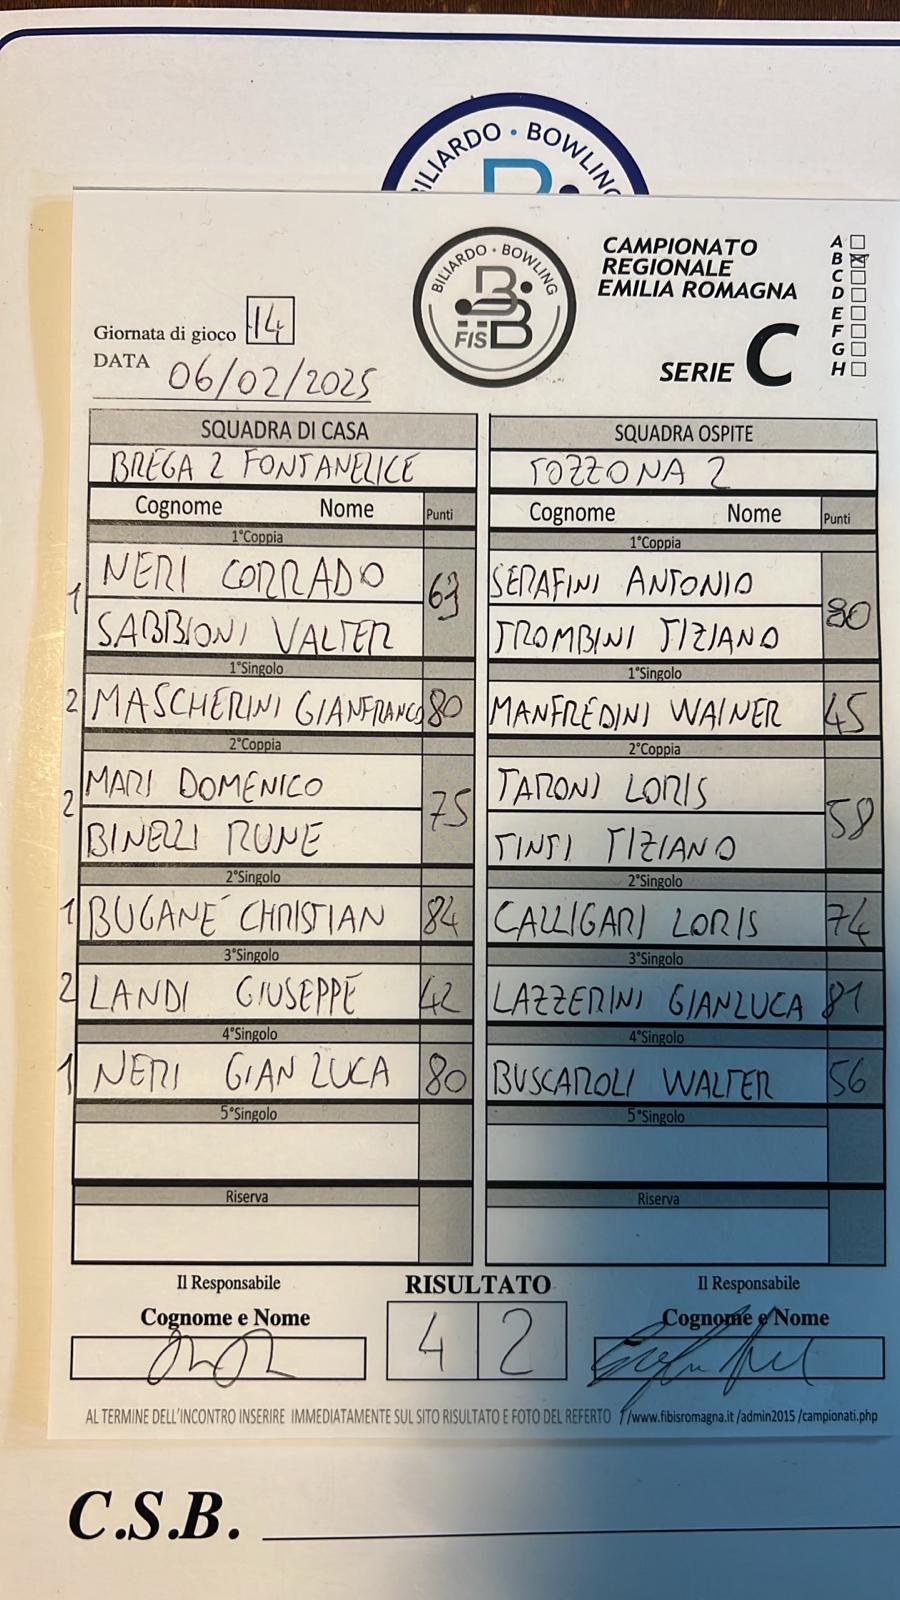 BILIARDO • BOWLING
B
BILIARDO • BOWLING
FISBB
CAMPIONATO
REGIONALE
EMILIA ROMAGNA
SERIE C
A
B
C
D
E
F
G
H
Giornata di gioco 14
DATA 06/02/2025
SQUADRA DI CASA
BREGA 2 FONTANELICE
Cognome Nome Punti
1°Coppia
1 NERI CORRADO 63
SABBIONI VALTER
1°Singolo
2 MASCHERINI GIANFRANCO 80
2°Coppia
2 MARI DOMENICO 75
BINELLI RUNE
2°Singolo
1 BUGANE´ CHRISTIAN 84
3°Singolo
2 LANDI GIUSEPPE 42
4°Singolo
1 NERI GIAN LUCA 80
5°Singolo
Riserva
SQUADRA OSPITE
TOZZONA 2
Cognome Nome Punti
1°Coppia
SERAFINI ANTONIO 80
TROMBINI TIZIANO
1°Singolo
MANFREDINI WAINER 45
2°Coppia
TARONI LORIS 58
TINTI TIZIANO
2°Singolo
CALLIGARI LORIS 74
3°Singolo
LAZZERINI GIANLUCA 81
4°Singolo
BUSCAROLI WALTER 56
5°Singolo
Riserva
Il Responsabile
Cognome e Nome
RISULTATO
4 2
Il Responsabile
Cognome e Nome
AL TERMINE DELL'INCONTRO INSERIRE IMMEDIATAMENTE SUL SITO RISULTATO E FOTO DEL REFERTO /www.fibisromagna.it /admin2015 /campionati.php
C.S.B.